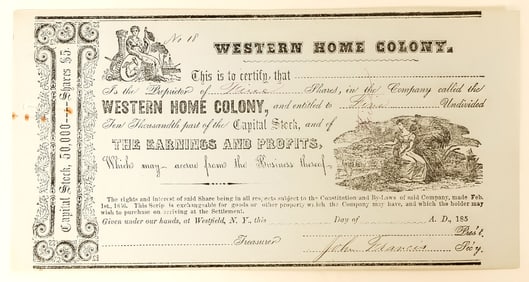 No 18
WESTERN HOME COLONY.
This is to certify, that
Is the Proprietor of Shares, in the Company called the
WESTERN HOME COLONY, and entitled to Undivided
Ten Thousandth part of the Capital Stock, and of
THE EARNINGS AND PROFITS,
Which may accrue from the Business thereof.
The rights and interest of said Share being in all respects subject to the Constitution and By-Laws of said Company, made Feb.
1st, 1856. This Scrip is exchangeable for goods or other property which the Company may have, and which the holder may
wish to purchase on arriving at the Settlement.
Given under our hands, at Westfield, N. Y., this Day of A. D., 185
Pres't.
Treasurer John Francis Sec'y.
Capital Stock, 50,000—Shares $5.